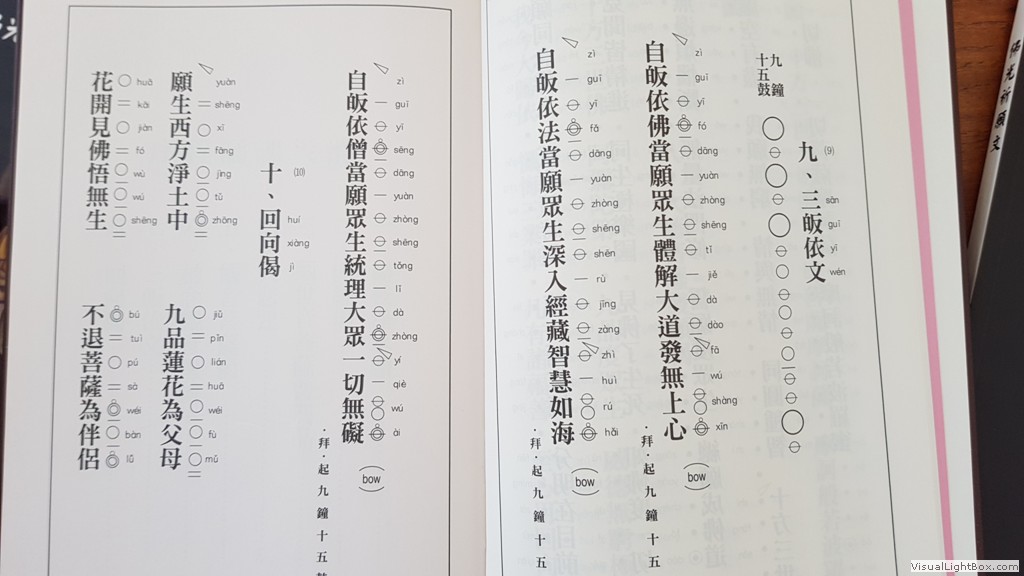 佛光祈願文
(9)
sān guī yī wén
九、三皈依文
九鐘
十五鼓
zì guī yī fó dāng yuàn zhòng shēng tǐ jiě dà dào fā wú shàng xīn
自皈依佛當願眾生體解大道發無上心
(bow)
·拜·起九鐘十五
zì guī yī fǎ dāng yuàn zhòng shēng shēn rù jīng zàng zhì huì rú hǎi
自皈依法當願眾生深入經藏智慧如海
(bow)
·拜·起九鐘十五
zì guī yī sēng dāng yuàn zhòng shēng tǒng lǐ dà zhòng yí qiè wú ài
自皈依僧當願眾生統理大眾一切無礙
(bow)
·拜·起九鐘十五鼓
(10)
huí xiàng jì
十、回向偈
yuàn shēng xī fāng jìng tǔ zhōng
願生西方淨土中
jiǔ pǐn lián huā wéi fù mǔ
九品蓮花為父母
huā kāi jiàn fó wù wú shēng
花開見佛悟無生
bú tuì pú sà wéi bàn lǚ
不退菩薩為伴侶
VisualLightBox.com